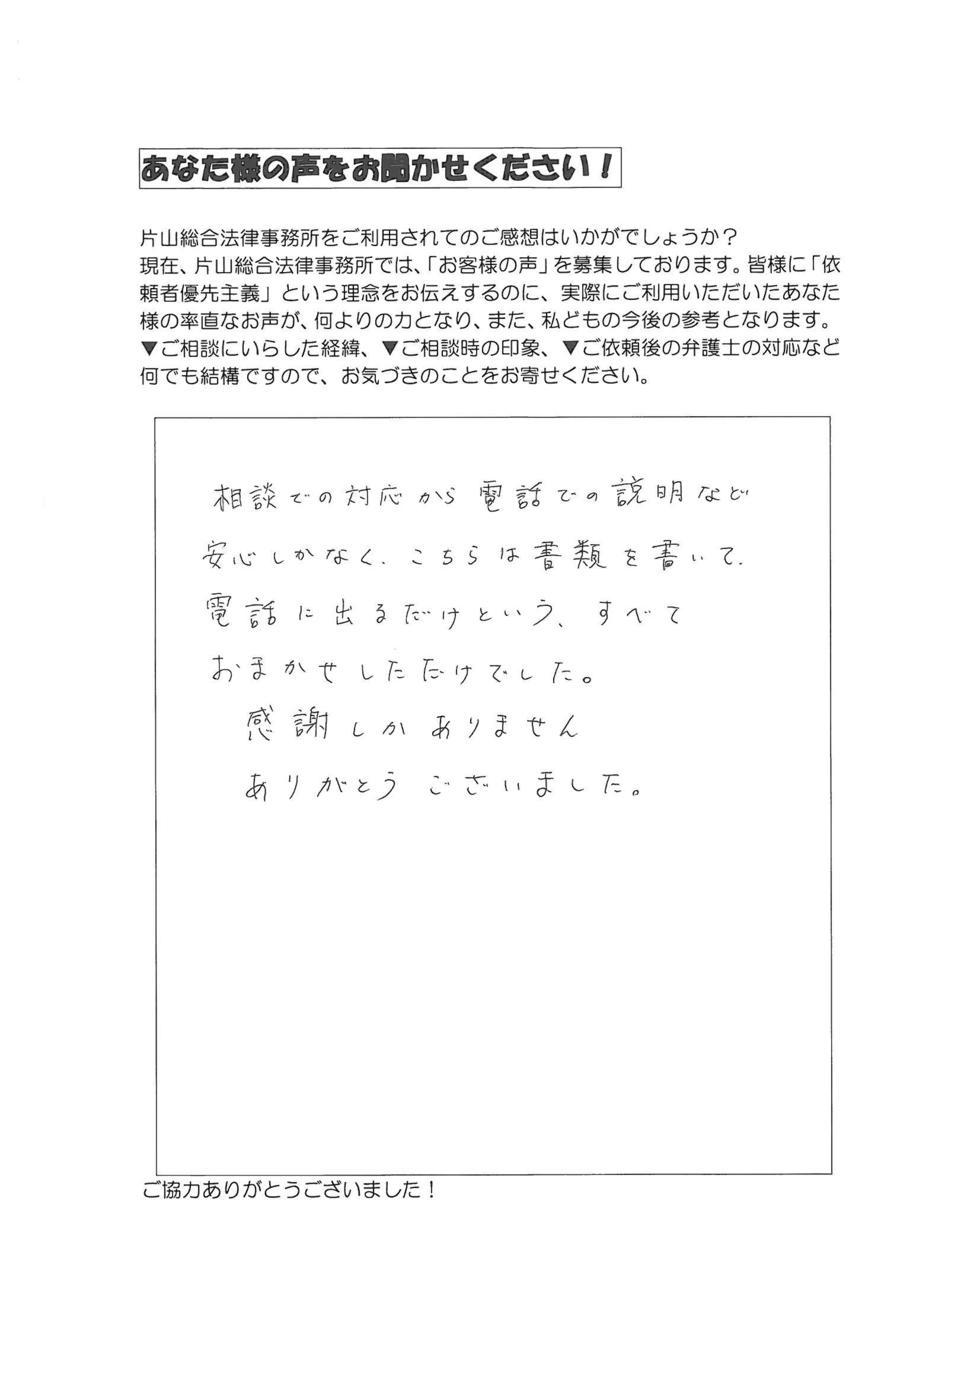 あなた様の声をお聞かせください！
片山総合法律事務所をご利用されてのご感想はいかがでしょうか？
現在、片山総合法律事務所では、「お客様の声」を募集しております。皆様に「依
頼者優先主義」という理念をお伝えするのに、実際にご利用いただいたあなた
様の率直なお声が、何よりの力となり、また、私どもの今後の参考となります。
▼ご相談にいらした経緯、▼ご相談時の印象、▼ご依頼後の弁護士の対応など
何でも結構ですので、お気づきのことをお寄せください。
相談での対応から電話での説明など
安心しかなく、こちらは書類を書いて、
電話に出るだけという、すべて
おまかせしただけでした。
感謝しかありません
ありがとうございました。
ご協力ありがとうございました！